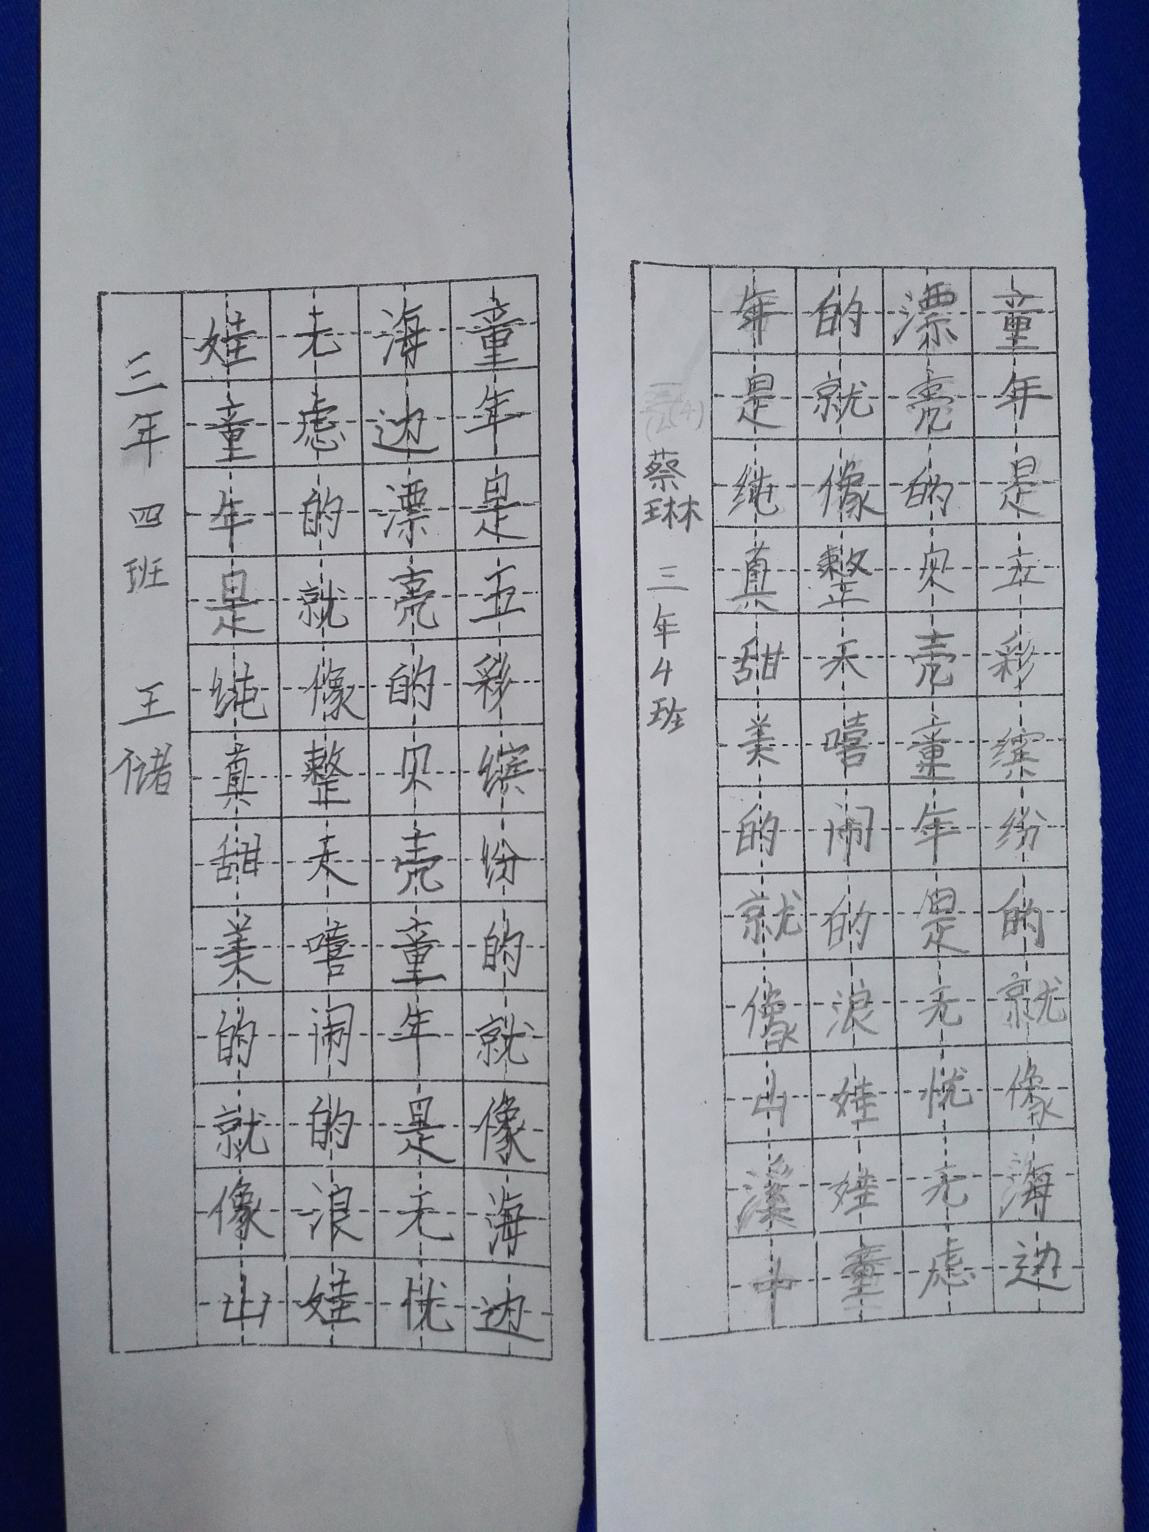 童年是五彩缤纷的就像海边
海边漂亮的贝壳童年是无忧
无虑的就像整天嘻闹的浪娃
娃童年是纯真甜美的就像山
三年四班 王储
童年是五彩缤纷的就像海边
漂亮的贝壳童年是无忧无虑
的就像整天嘻闹的浪娃娃童
年是纯真甜美的就像山溪中
蔡琳 三年4班